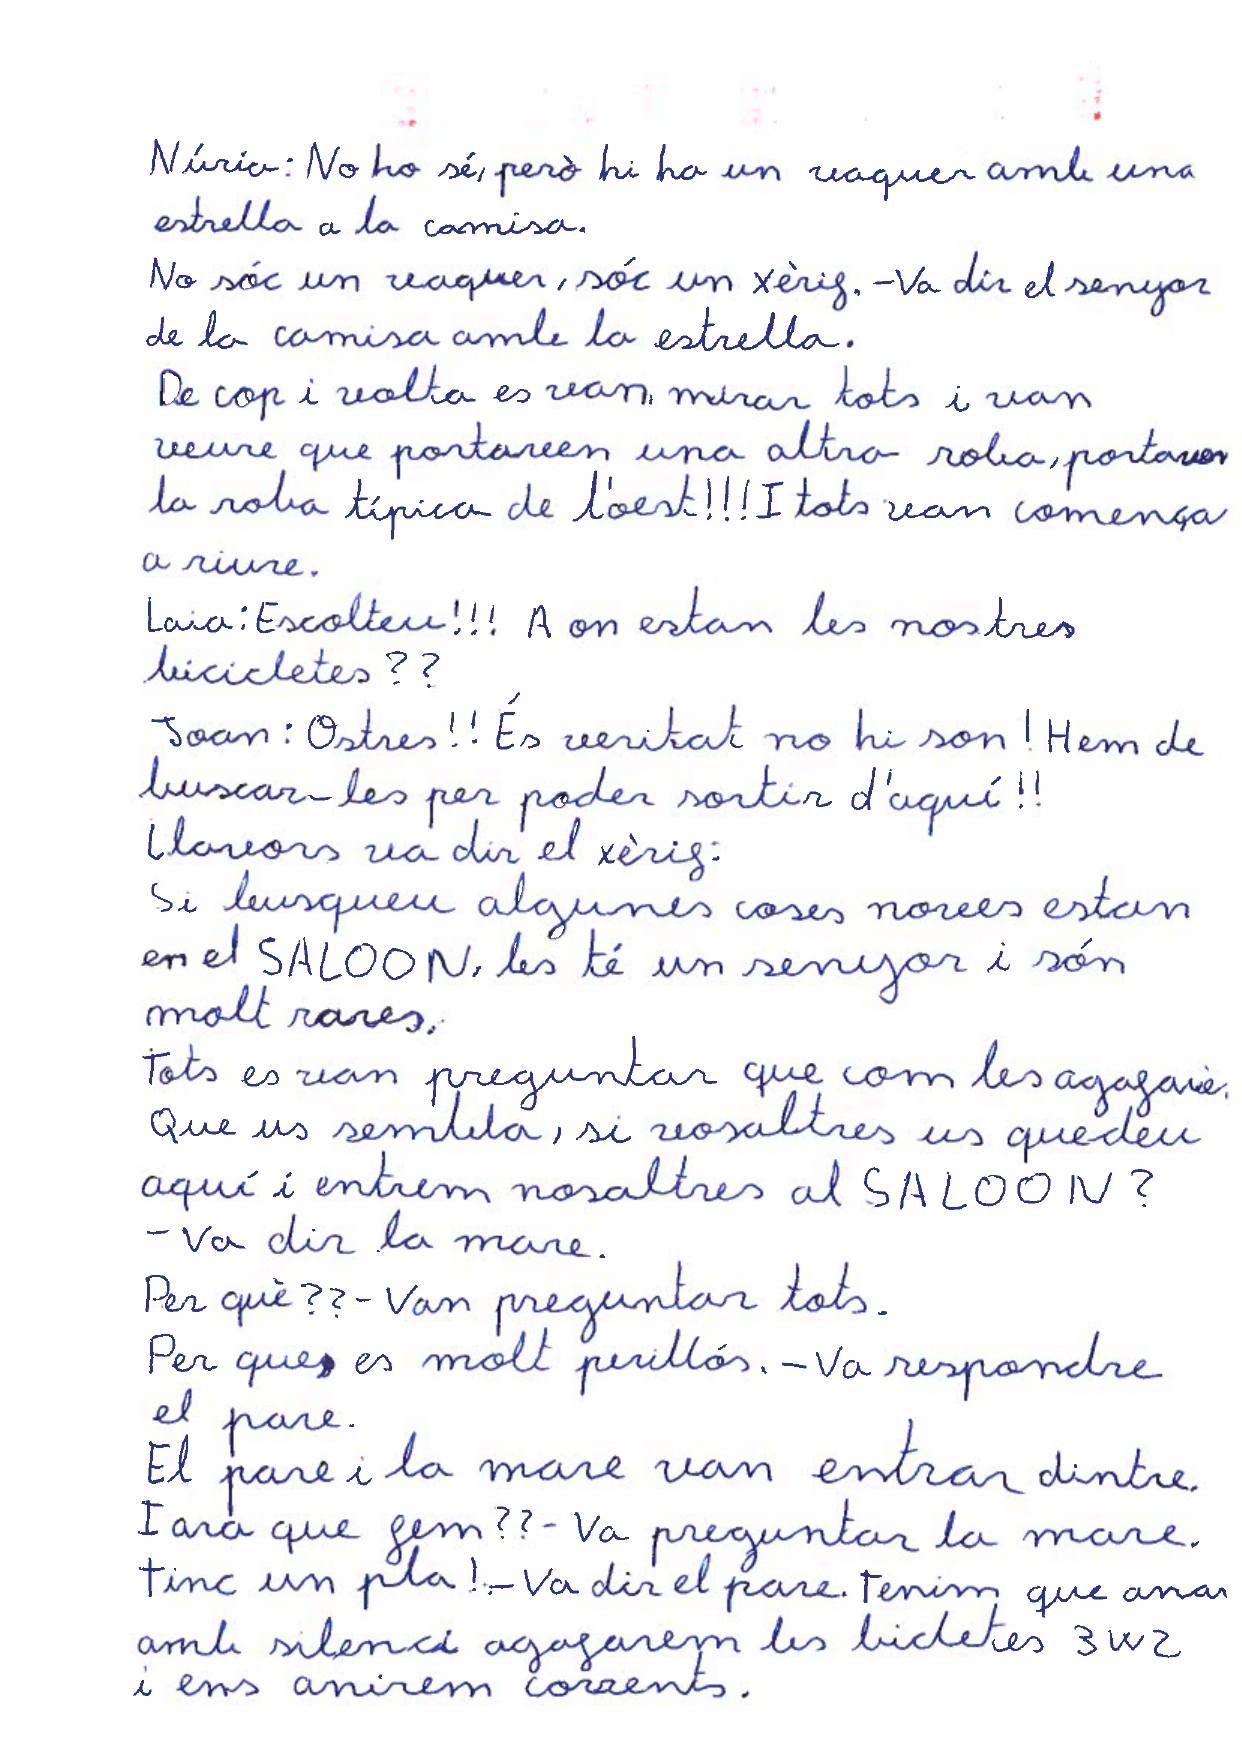 Núria: No ho sé, però hi ha un vaquer amb una
estrella a la camisa.
No sóc un vaquer, sóc un xèrig. -Va dir el senyor
de la camisa amb la estrella.
De cop i volta es van mirar tots i van
veure que portaven una altra roba, portaven
la roba típica de l'oest!!! I tots van comença
a riure.
Laia: Escolteu!!! A on estan les nostres
bicicletes??
Joan: Ostres!! És veritat no hi son! Hem de
buscar-les per poder sortir d'aquí!!
Llavors va dir el xèrig:
Si busqueu algunes coses noves estan
en el SALOON, les té un senyor i són
molt rares.
Tots es van preguntar que com les
Que us sembla, si vosaltres us quedeu
aquí i entrem nosaltres al SALOON?
- Va dir la mare.
Per què?? - Van preguntar tots.
Per que, es molt perillós. - Va respondre
el pare.
El pare i la mare van entrar dintre.
I ara que fem?? - Va preguntar la mare.
Tinc un pla! - Va dir el pare. Tenim que anar
amb silenci agafarem les bicletes 3W2
i ens anirem corrents.